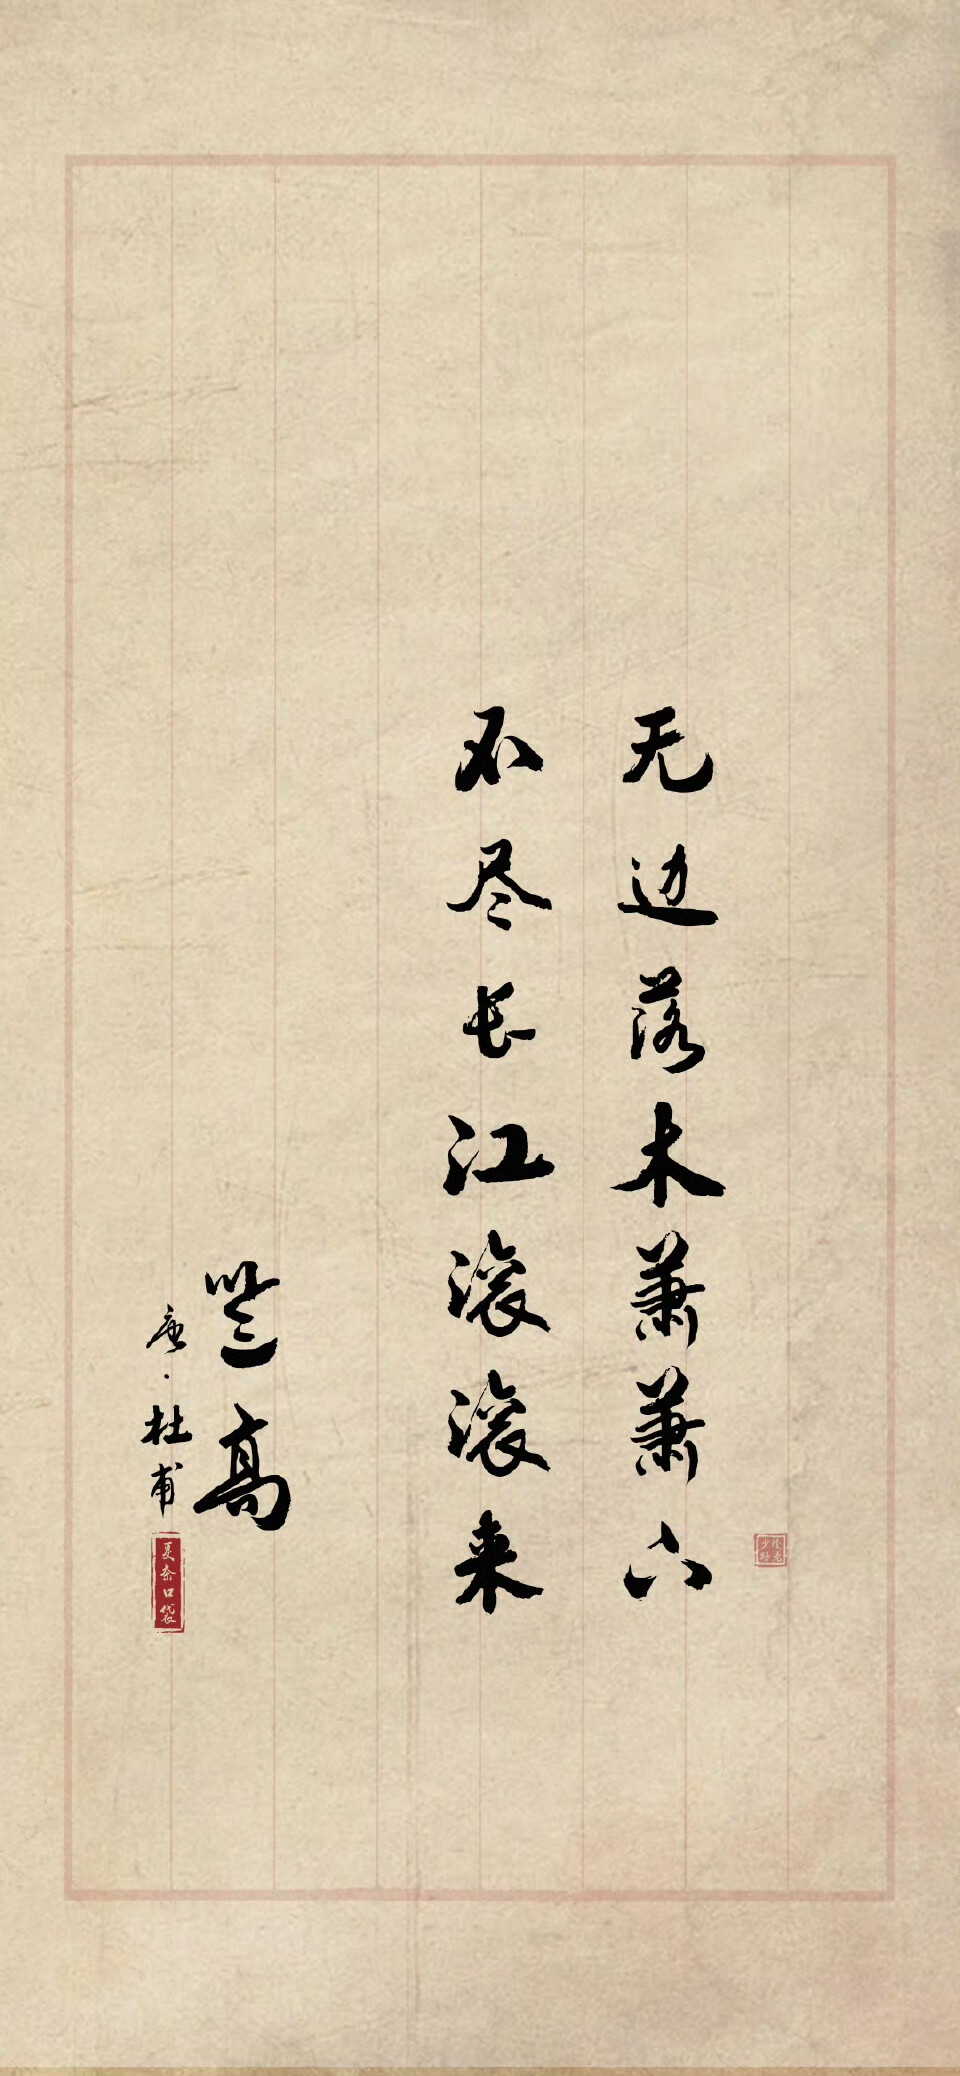 无边落木萧萧下
不尽长江滚滚来
登高
唐·杜甫
夏奈口袋